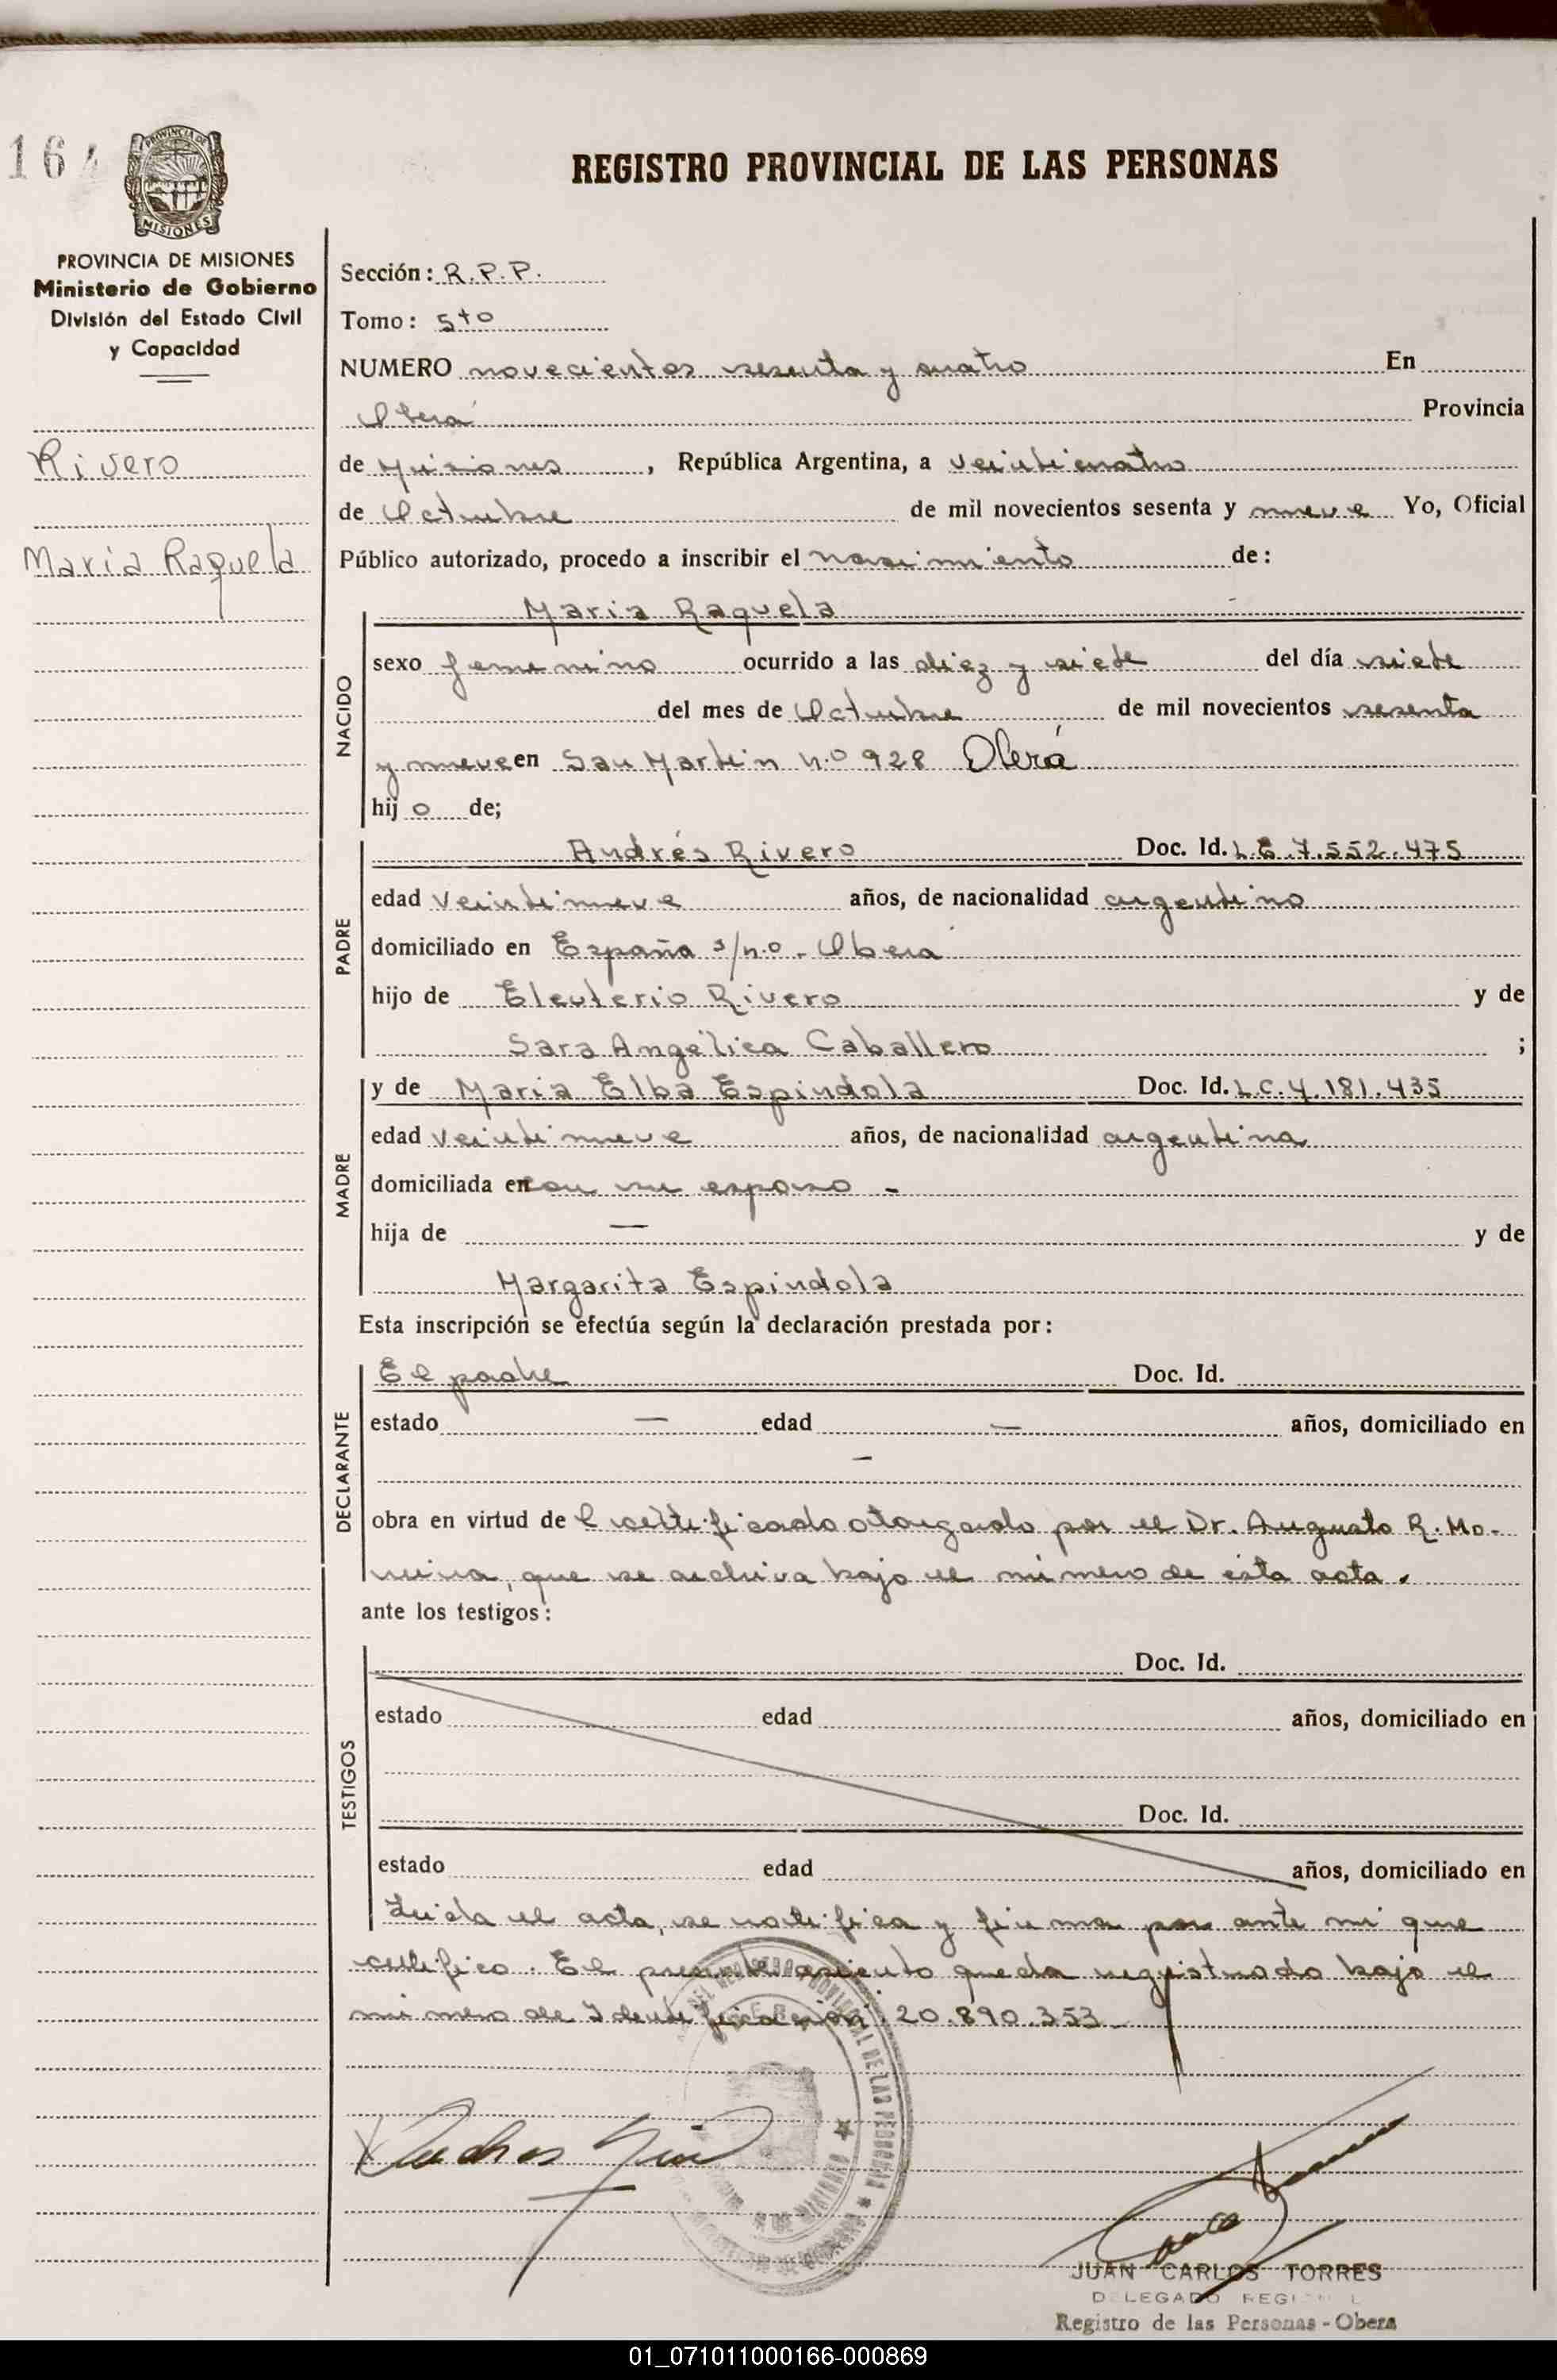 164
PROVINCIA DE
MISIONES
REGISTRO PROVINCIAL DE LAS PERSONAS
PROVINCIA DE MISIONES
Ministerio de Gobierno
División del Estado Civil
y Capacidad
Rivero
Maria Raquela
Sección: R.P.P.
Tomo: 5to
NUMERO novecientos sesenta y cuatro En
Oberá Provincia
de Misiones, República Argentina, a veinticuatro
de Octubre de mil novecientos sesenta y nueve Yo, Oficial
Público autorizado, procedo a inscribir el nacimiento de:
NACIDO
Maria Raquela
sexo femenino ocurrido a las diez y siete del día siete
del mes de Octubre de mil novecientos sesenta
y nueve en San Martin n.o 928 Oberá
hij o de;
PADRE
Andrés Rivero Doc. Id. L.E 7.552.475
edad veintinueve años, de nacionalidad argentino
domiciliado en España s/n.o - Oberá
hijo de Eleuterio Rivero y de
Sara Angélica Caballero ;
MADRE
y de Maria Elba Espindola Doc. Id. L.C. 4.181.435
edad veintinueve años, de nacionalidad argentina
domiciliada en con su esposo -
hija de — y de
Margarita Espindola
Esta inscripción se efectúa según la declaración prestada por:
DECLARANTE
El padre Doc. Id.
estado — edad — años, domiciliado en
—
obra en virtud de l certificado otorgado por el Dr. Augusto R. Mo-
que se archiva bajo el número de esta acta.
ante los testigos:
TESTIGOS
Doc. Id.
estado edad años, domiciliado en
Doc. Id.
estado edad años, domiciliado en
Leida el acta, se ratifica y firma por ante mi que
certifico. El presente asiento queda registrado bajo el
número de Identificación: 20.890.353
Andres
JUAN CARLOS TORRES
DELEGADO REGIONAL
Registro de las Personas - Obera
01_071011000166-000869